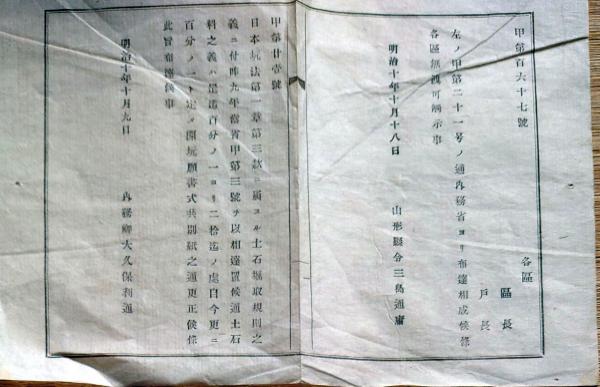 甲第百六十七號
各區 區長
戸長
左ノ甲第二十一号ノ通內務省ヨリ布達相成候條
各區無洩可觸示事
明治十年十月十八日
山形縣令三島通庸
甲第廿壹號
日本坑法第一章第三款ニ屬スル土石堀取規則之
義ニ付昨九年當省甲第三號ヲ以相達置候通土石
料之義ハ是迄百分ノ一ヨリ二拾迄ノ處自今更ニ
百分ノ一ト定メ開坑願書式共別紙之通更正候條
此旨布達候事
明治十年十月九日
內務卿大久保利通